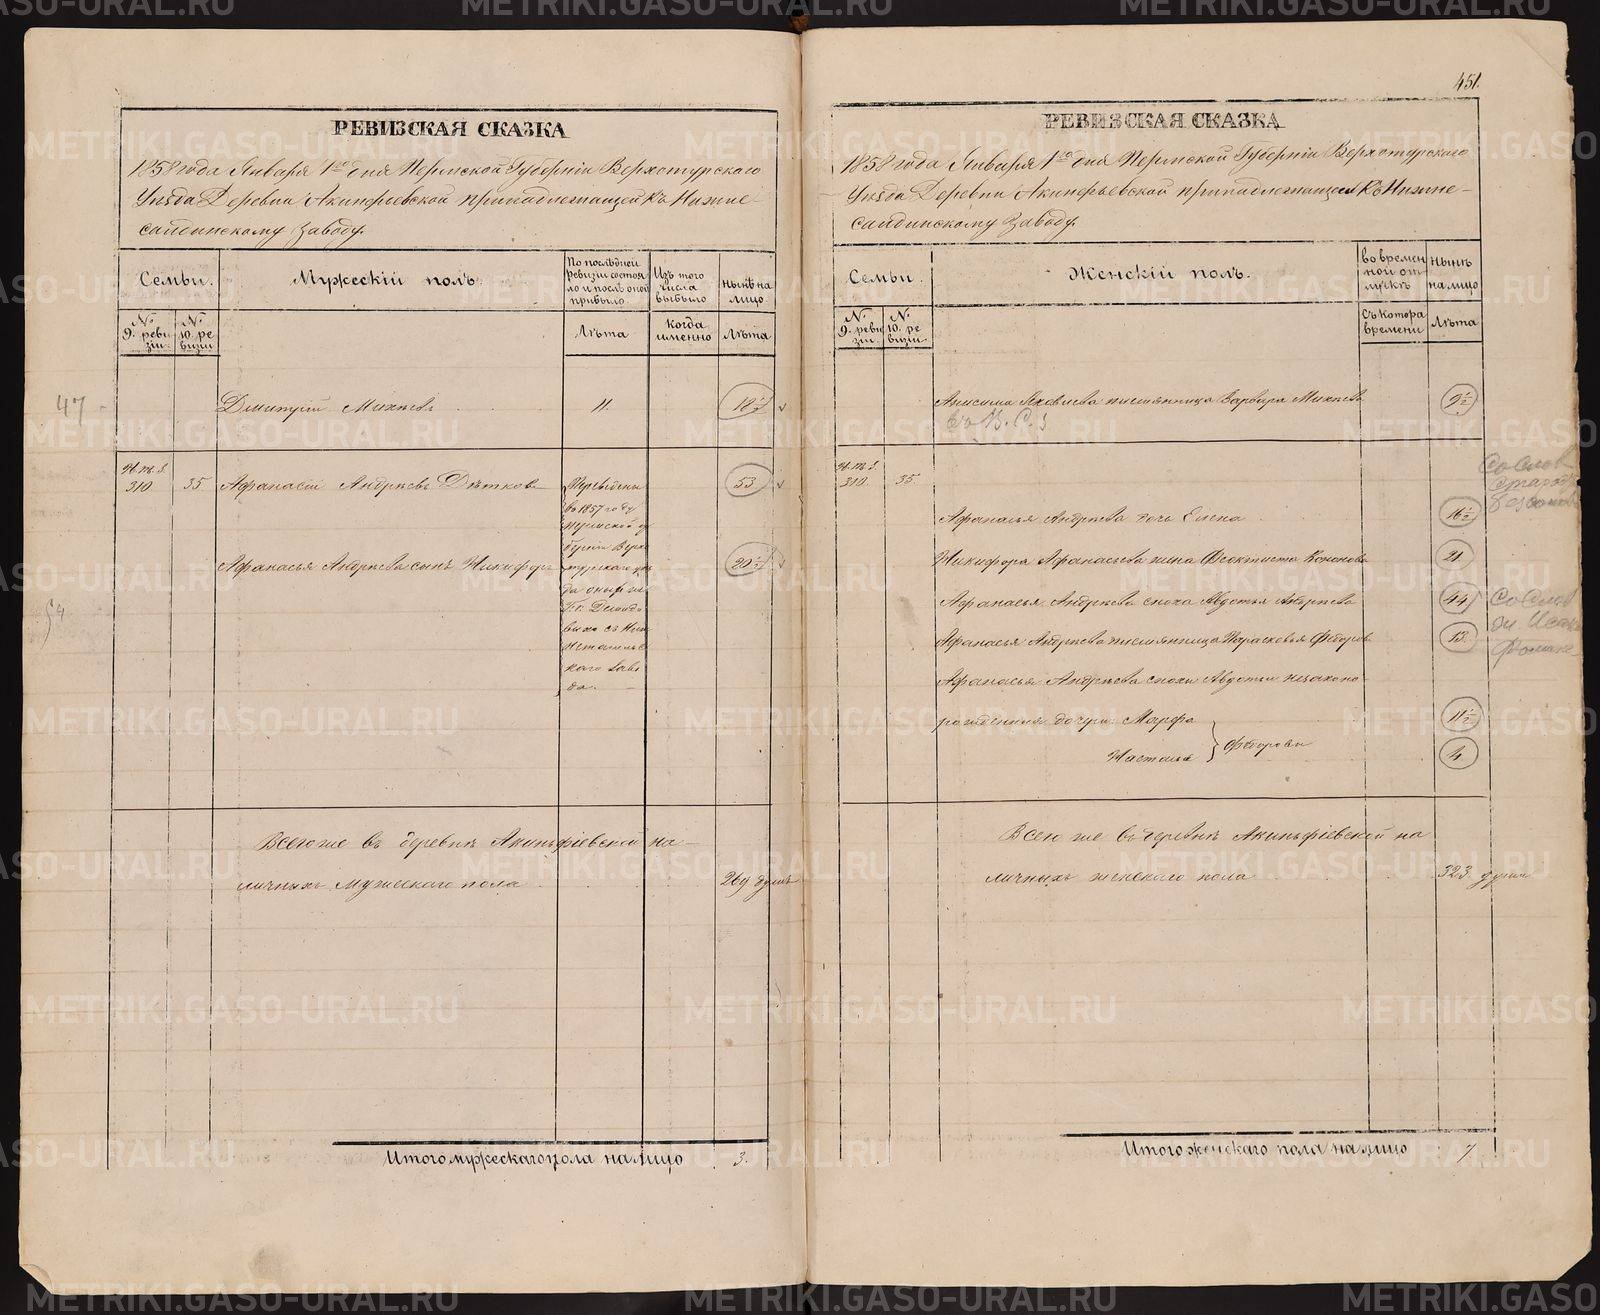 451.
РЕВИЗСКАЯ СКАЗКА
1858 года Января 1го дня Пермской Губерніи Верхотурскаго
Уѣзда Деревни Акинфьевской принадлежащей Къ Нижне-
салдинскому заводу.
Семьи.
Мужескій полъ.
По послѣдней
ревизіи состоя
ло и послѣ оной
прибыло
Изъ того
числа
выбыло
Нынѣ на
лицо
№
9. реви
зіи
№
10. ре
визіи
Лѣта
Когда
именно
Лѣта
47
Дмитрій Михѣевъ 11. 18½
Н.т.з.
310 35 Афанасій Андрѣевъ Дѣтковъ 53
Переведены
въ 1857 году
Пермской гу
берніи Верхо
турскаго уѣз
да
Гг. Демидо
выхъ съ Ниж
нетагильс
каго заво
да.
Афанасья Андрѣева сынъ Никифоръ 20½
Всего же въ деревнѣ Акинфіевской на-
личныхъ мужескаго пола 269 душъ
Итого мужескаго пола на лицо 3.
РЕВИЗСКАЯ СКАЗКА
1858 года Января 1го дня Пермской Губерніи Верхотурскаго
Уѣзда Деревни Акинфьевской принадлежащей Къ Нижне-
салдинскому заводу.
Семьи.
Женскій полъ.
во времен
ной от
лучкѣ
Нынѣ
на лицо
№
9. реви
зіи
№
10. ре
визіи
Съ котора
времени
Лѣта
Анисима Яковлева племянница Варвара Михѣева 9½
Н.т.з.
310 35.
Афанасья Андрѣева дочь Елена 16½
Никифора Афанасьева жена Феоктиста Кононова 21.
Афанасья Андрѣева сноха Авдотья Андрѣева 44
Афанасья Андрѣева племянница Парасковья Федорова 13.
Афанасья Андрѣева снохи Авдотьи незаконо-
рожденныя дочери: Марфа 11½
Наталья } Федоровы 4
Всего же въ деревнѣ Акинфіевской на
личныхъ женскаго пола 323 души
Итого женскаго пола на лицо 7.
METRIKI.GASO-URAL.RU